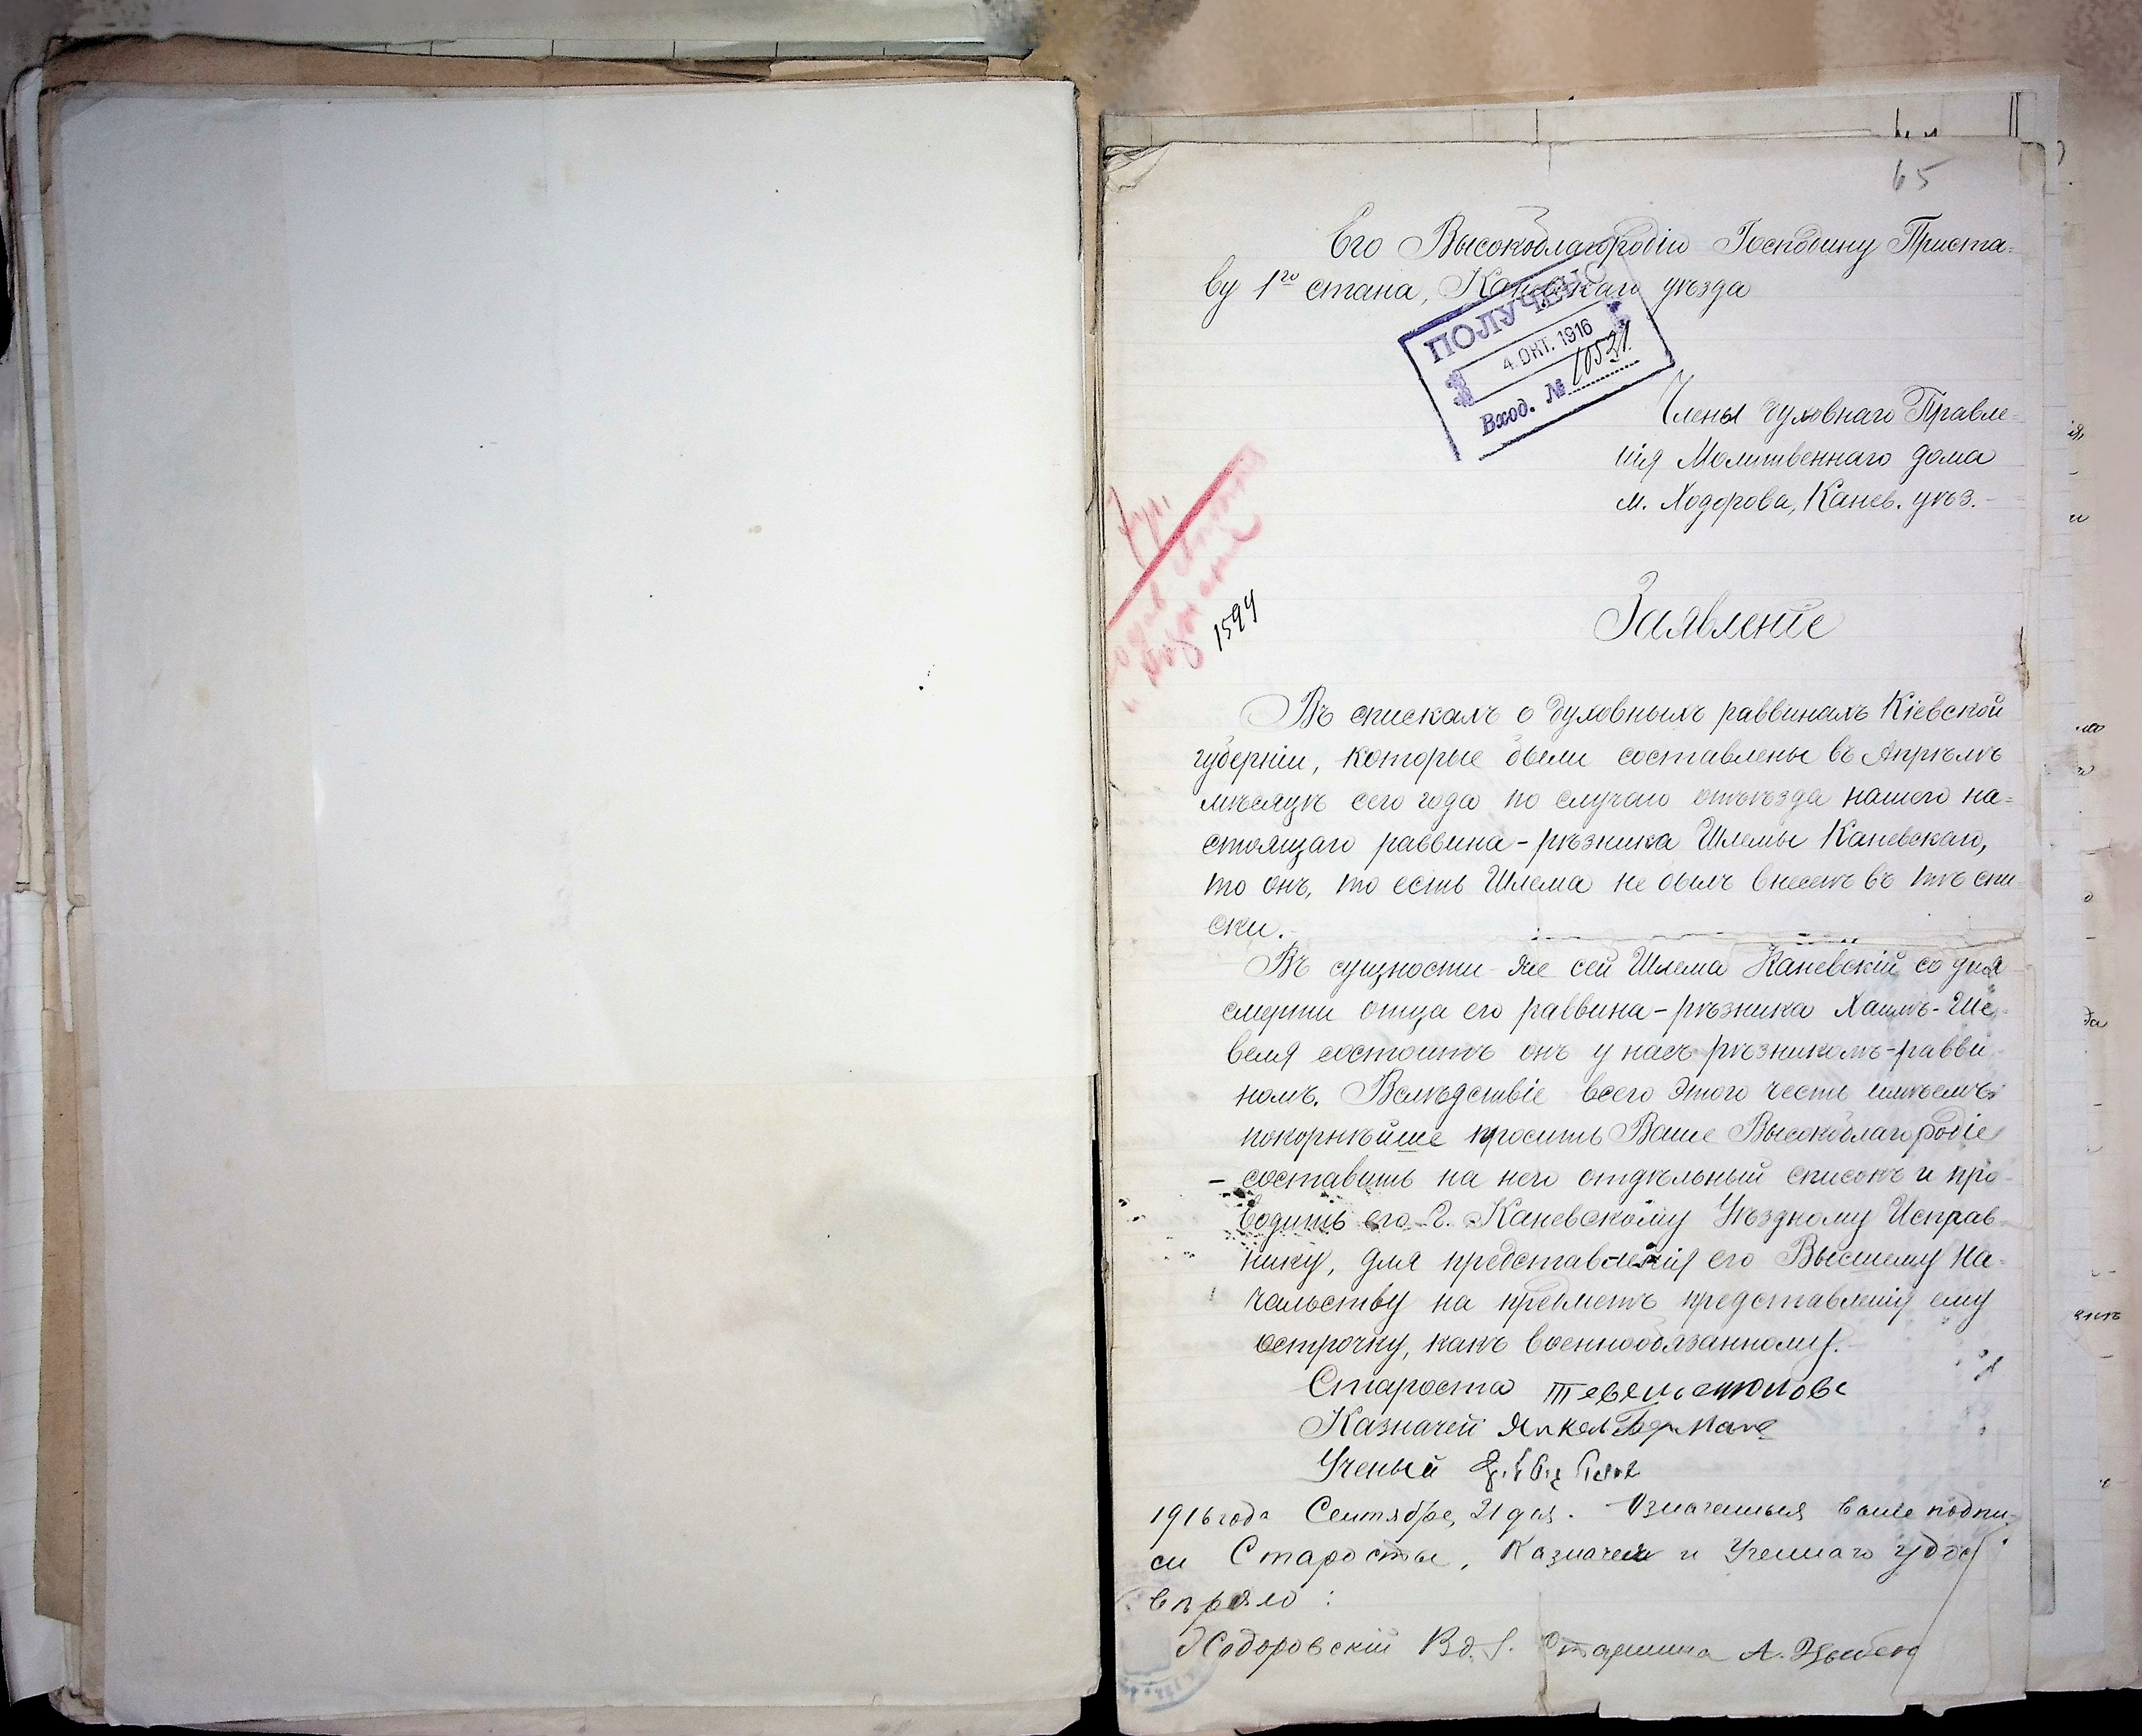 65
Его Высокоблагородію Господину Приста-
ву 1го стана, Каневскаго уѣзда
ПОЛУЧЕНО
4. ОКТ. 1916
Вход. № 10521
Члены духовнаго Правле-
нія Молитвеннаго дома
м. Ходорова, Канев. уѣз.-
1594
Заявленіе
Въ спискахъ о духовныхъ раввинахъ Кіевской
губерніи, которые были составлены въ Апрѣлѣ
мѣсяцѣ сего года по случаю отъѣзда нашего на=
стоящаго раввина-рѣзника Шлемы Каневскаго,
то онъ, то есть Шлема не былъ внесенъ въ тѣ спи-
ски.-
Въ сущности-же сей Шлема Каневскій со дня
смерти отца его раввина-рѣзника Хаимъ-Ше-
веля состоитъ онъ у насъ рѣзникомъ-равви-
номъ. Вслѣдствіе всего этого честь имѣемъ
покорнѣйше просить Ваше Высокоблагородіе
- составить на него отдѣльный списокъ и про-
водить его Г. Каневскому Уѣздному Исправ-
нику, для представленія его Высшему На-
чальству на предметъ представленія ему
острочку, какъ военнообязанному.
Староста
Казначей Янкел Берман
Ученый
1916 года Сентября, 21 дня. Означенныя выше подпи-
си Старосты, Казначея и Ученаго удос
вѣряю:
Ходоровскій В. д. Старшина А.